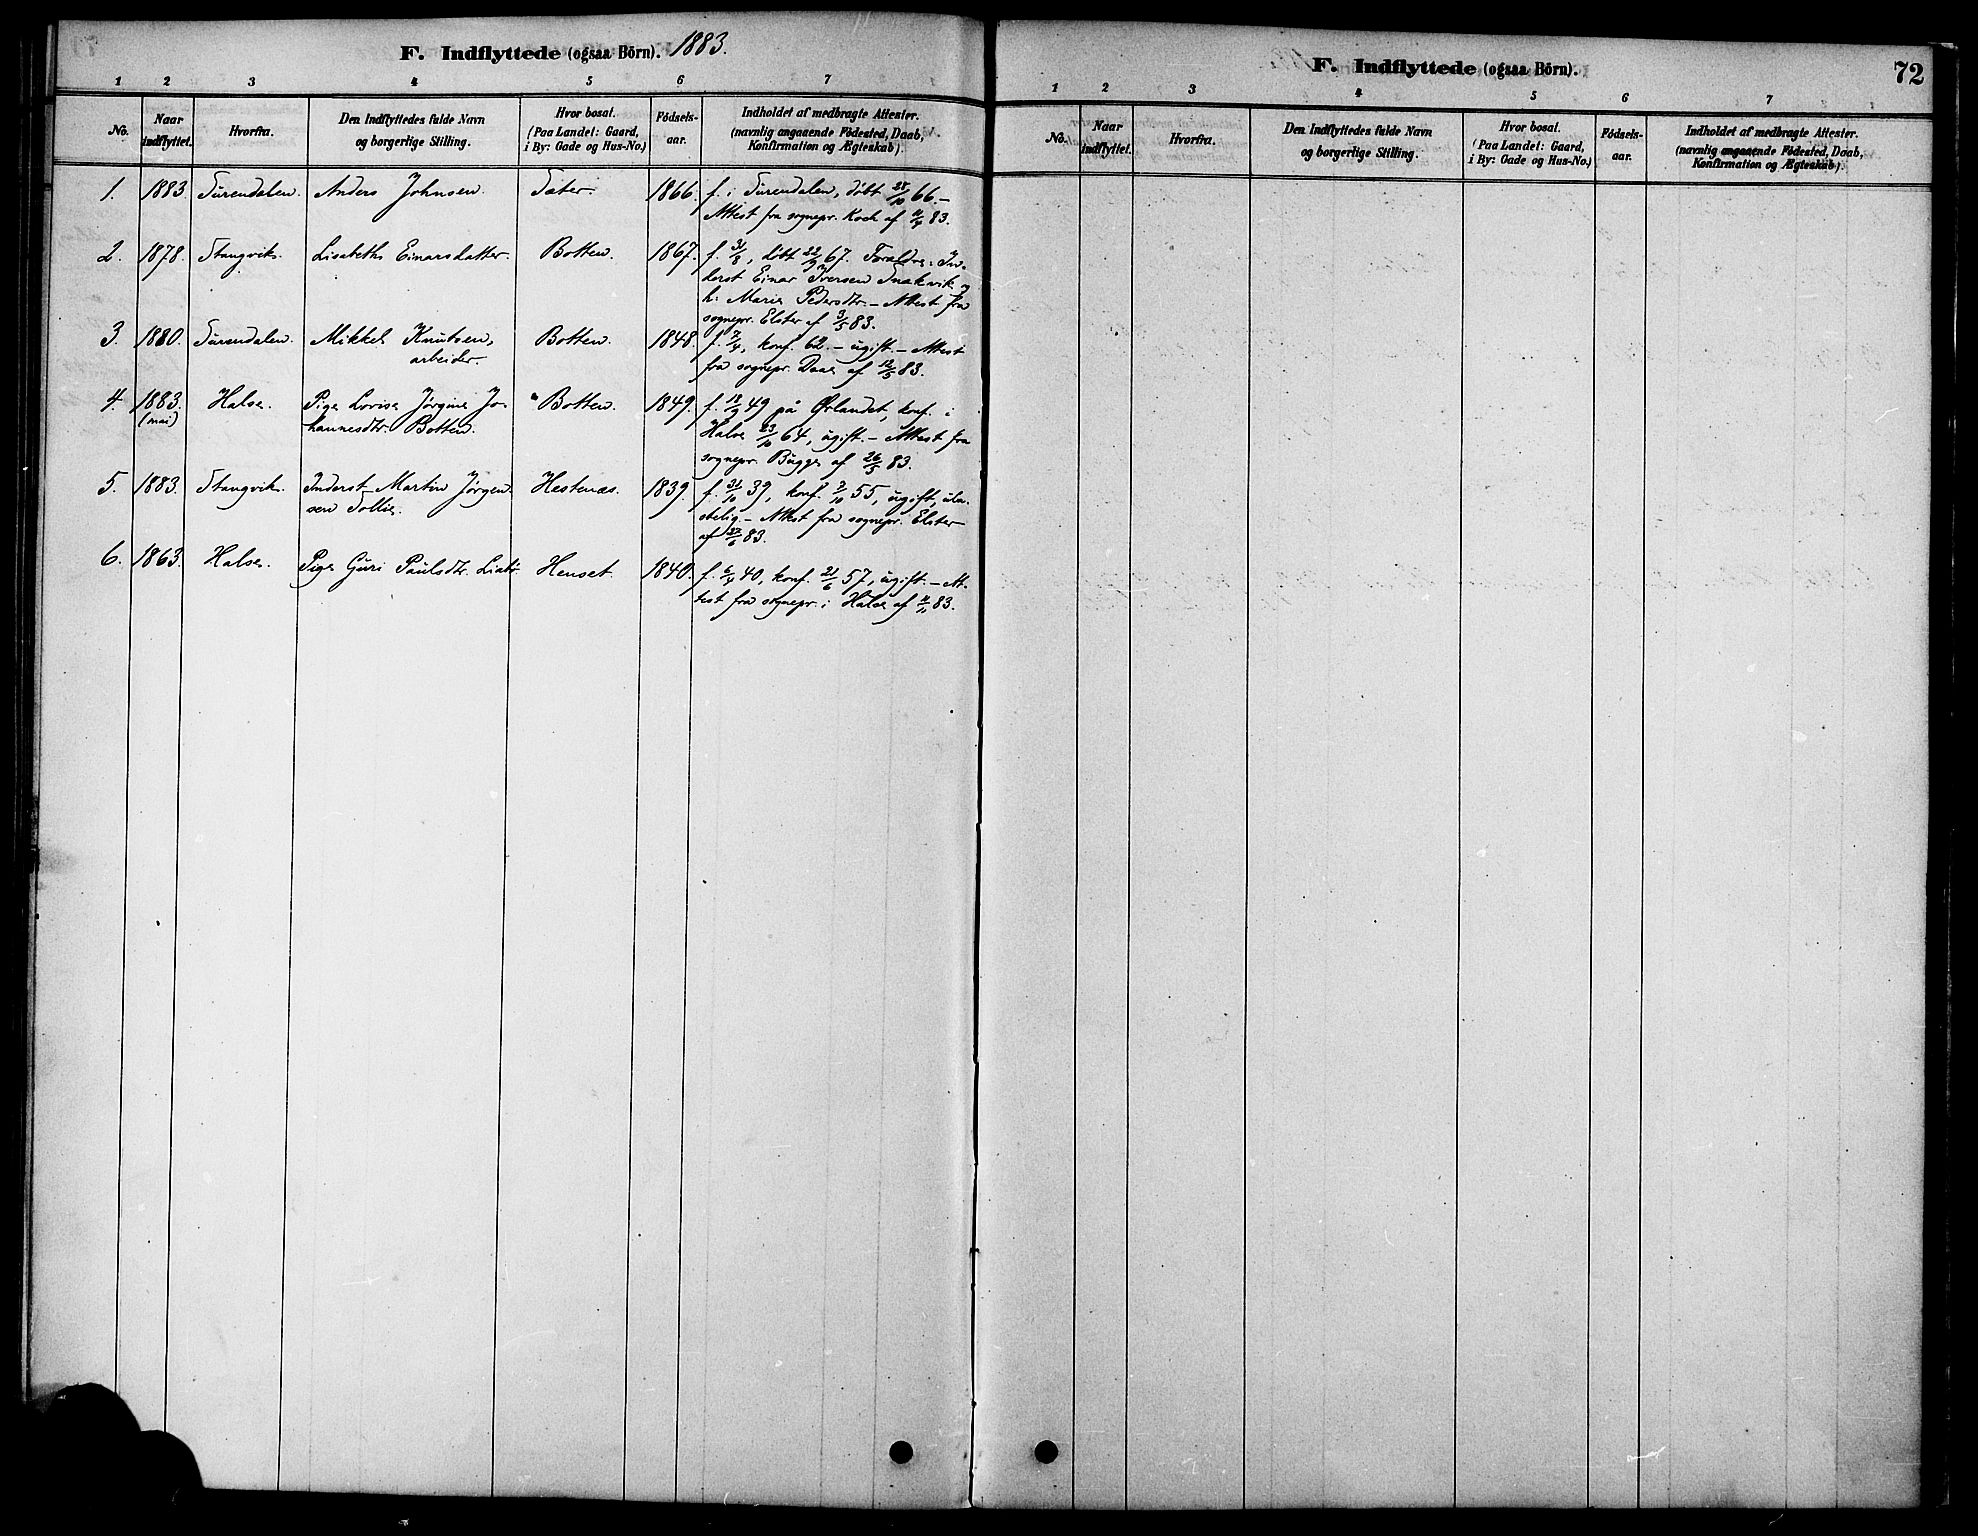 F. Indflyttede (ogsaa Börn). 1883.
1 2 3 4 5 6 7
No. Naar indflyttet. Hvorfra. Den Indflyttedes fulde Navn og borgerlige Stilling. Hvor bosat. (Paa Landet: Gaard, i By: Gade og Hus-No.) Födsels-aar. Indholdet af medbragte Attester. (navnlig angaaende Födested, Daab, Konfirmation og Ægteskab).
1. 1883. Surendalen. Anders Johnsen. Sæter. 1866. f. i Surendalen, døbt 28/10 66. –
Attest fra sognepr. Koch af 4/4 83.
2. 1878. Stangvik. Lisabeth Einarsdatter. Botten. 1867. f. 31/8, døbt 22/9 67. Forældre: In-
derst Einar Iversen Snækvik og
h. Marie Pedersdtr. – Attest fra
sognepr. Elster af 3/5 83.
3. 1880. Surendalen. Mikkel Knutsen, Botten. 1848. f. 7/4, konf. 62. – ugift. – Attest
arbeider. fra sognepr. Daae af 12/5 83.
4. 1883. Halse. Pige Lovise Jørgine Jo- Botten. 1849. f. 18/9 49 på Ørlandet, konf. i
(mai) hannesdtr. Botten. Halse 23/10 64, ugift. – Attest fra
sognepr. Bugge af 26/5 83.
5. 1883. Stangvik. Inderst Martin Jørgen- Hestenæs. 1839. f. 31/10 39, konf. 7/10 55, ugift, ula-
sen Sollie. stelig. – Attest fra sognepr. Elster
af 27/6 83.
6. 1863. Halse. Pige Guri Paulsdtr. Liabø. Henset. 1840. f. 6/4 40, konf. 21/6 57, ugift. – At-
test fra sognepr. i Halse af 4/11 83.
F. Indflyttede (ogsaa Börn). 72
1 2 3 4 5 6 7
No. Naar indflyttet. Hvorfra. Den Indflyttedes fulde Navn og borgerlige Stilling. Hvor bosat. (Paa Landet: Gaard, i By: Gade og Hus-No.) Födsels-aar. Indholdet af medbragte Attester. (navnlig angaaende Födested, Daab, Konfirmation og Ægteskab).